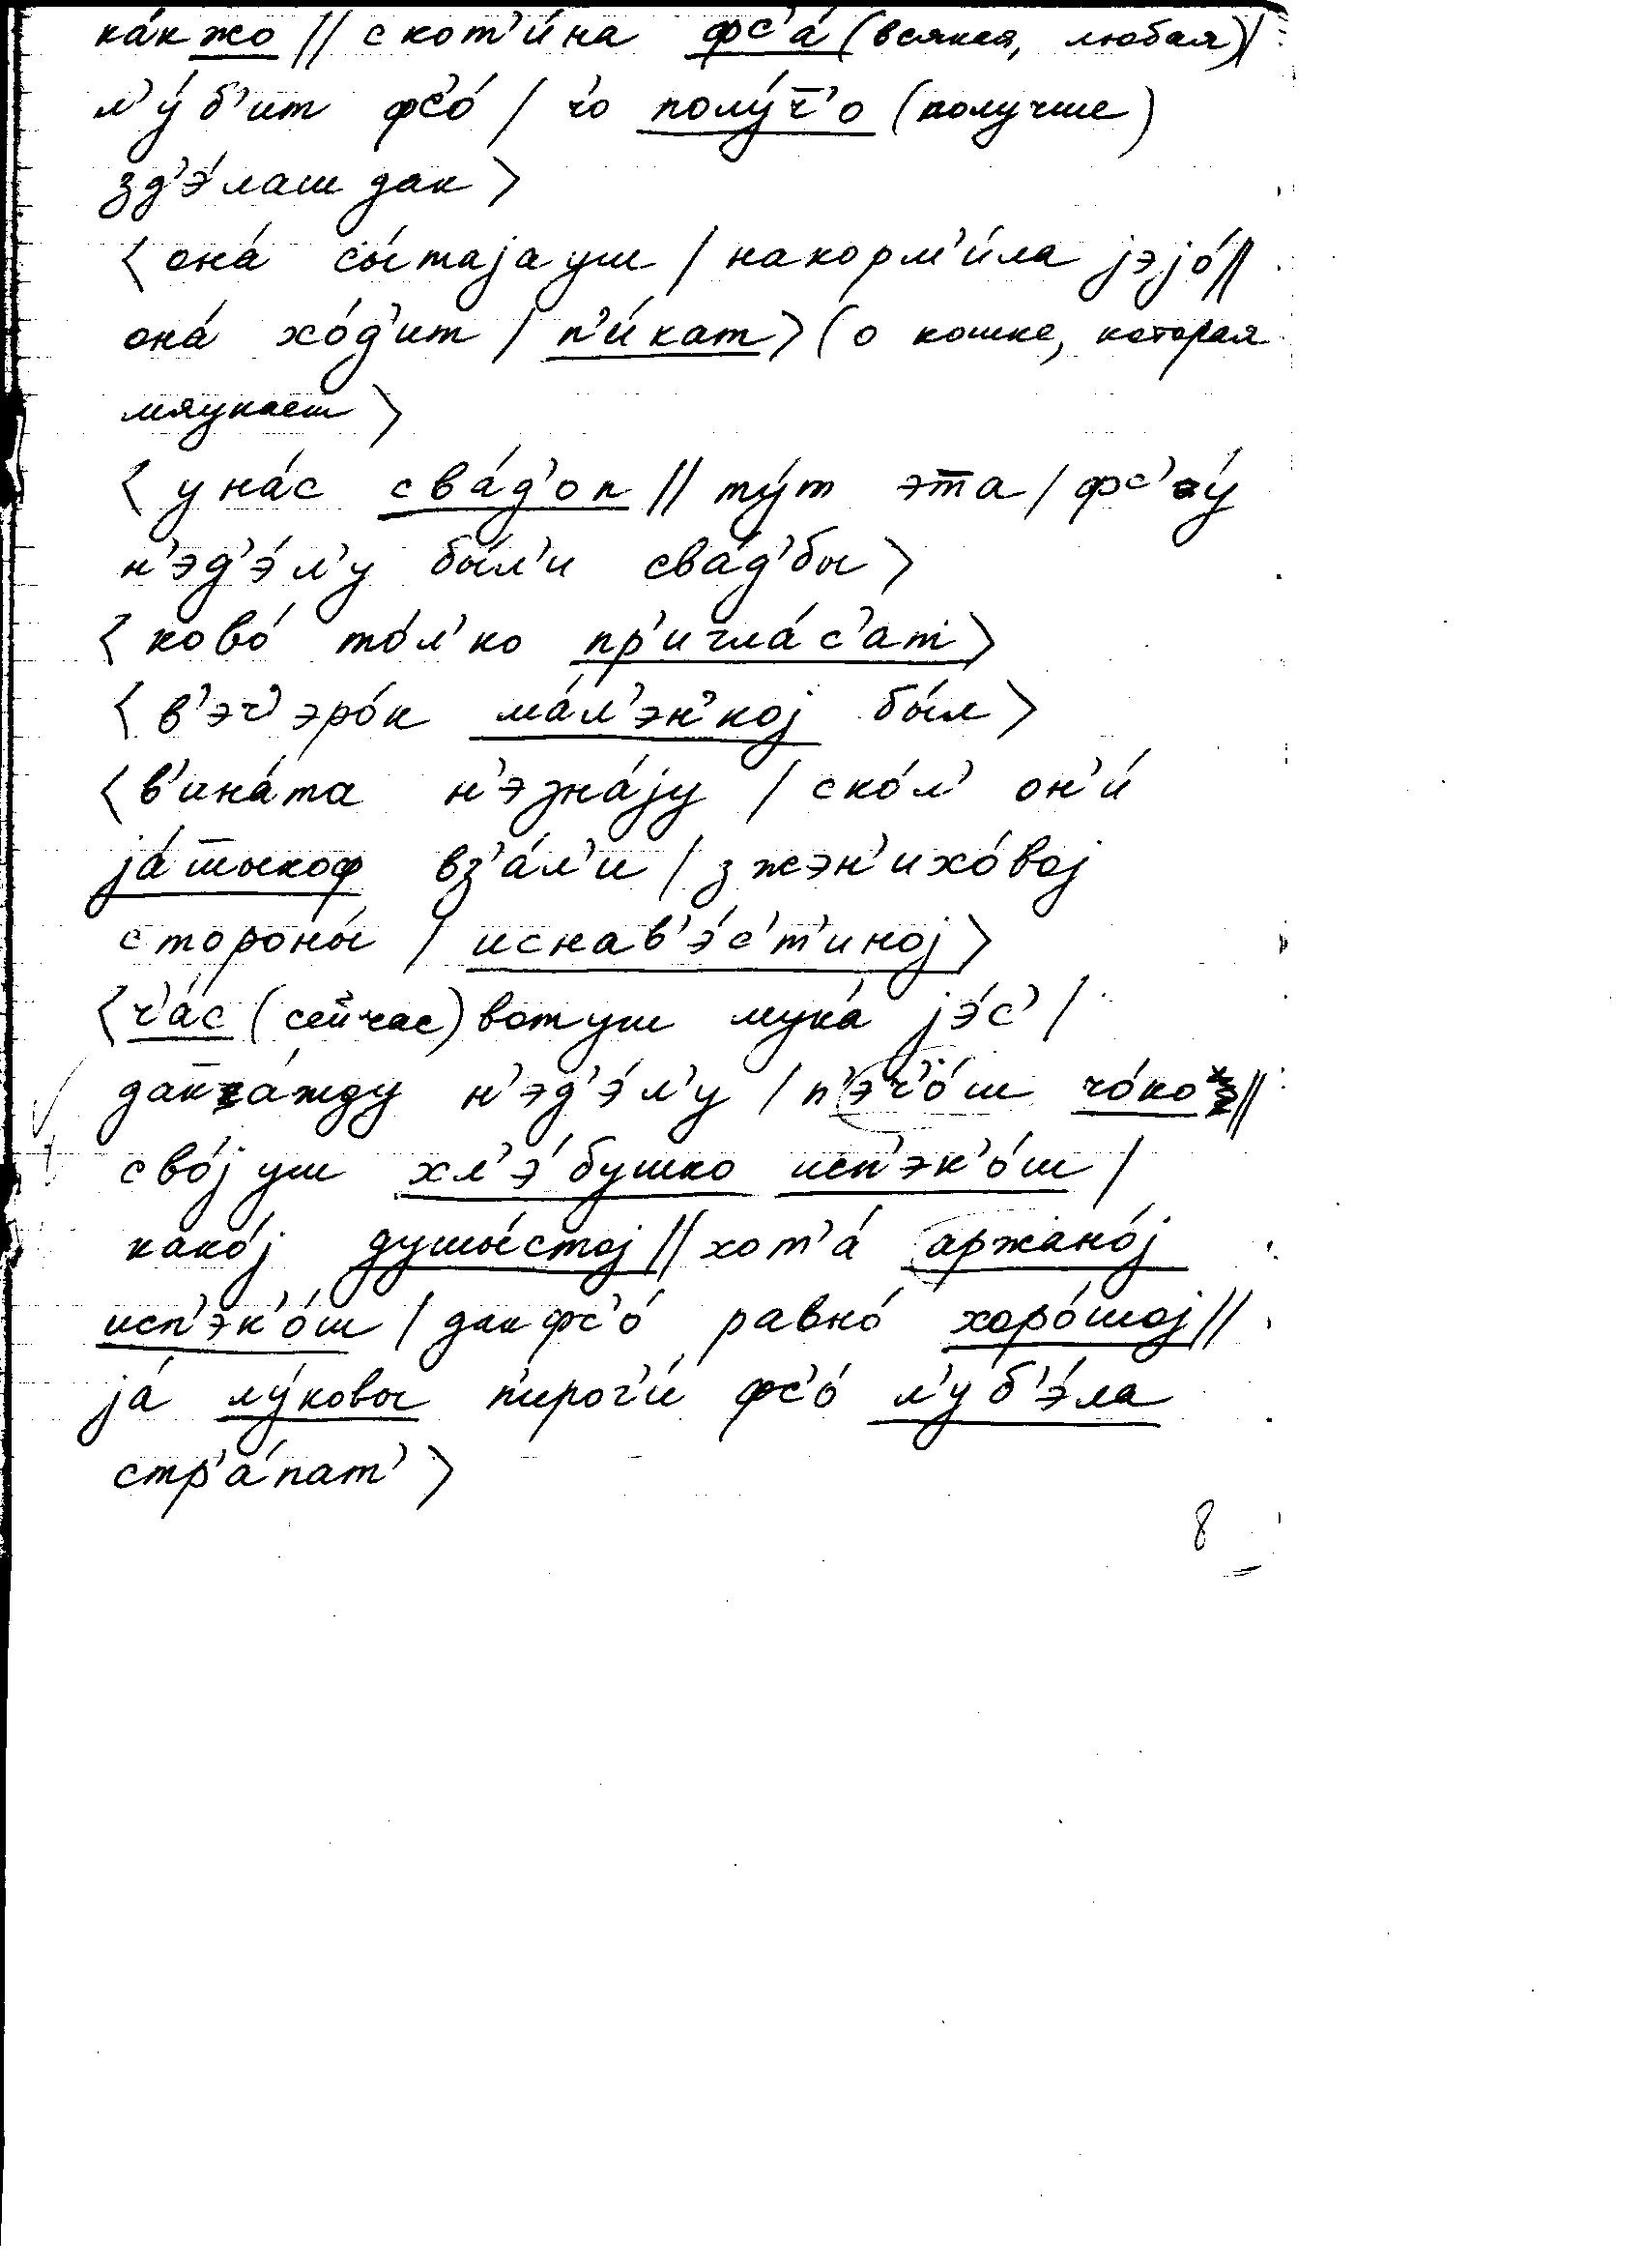 ка́кжо || скот'и́на фс'а́ (всякая, любая) |
л'у́б'ит фс'о́ / ч'о полу́ч̄'о (получше)
зд'э́лаш дак >
< она́ сы́таjауш / накорм'и́ла jэjо́ ||
она́ хо́д'ит / п'и́кат > (о кошке, которая
мяукает >
< у на́с сва́д'оп || ту́т эта / фс'у́
н'эд'э́л'у бы́л'и сва́д'бы >
< ково́ то́л'ко пр'игла́с'ат >
< в'эч'эро́к ма́л'эн'коj бы́л >
< в'ина́та н'эзна́jу / ско́л' он'и́
jа́шыкоф вз'а́л'и / зжэн'ихо́воj
стороны́ / иснав'э́с'т'иноj >
< ч'а́с (сейчас) вотуш мука́ jэ́с' /
дакка́жду н'эд'э́л'у / п'эч'о́ш чо́ко ||
сво́j уш хл'э́бушко исп'эк'о́ш /
како́j душы́стоj || хот'а́ аржано́j
исп'эк'о́ш / дакфс'о́ равно́ хоро́шоj ||
jа́ лу́ковы п'ирог'и́ фс'о́ л'уб'э́ла
стр'а́пат' >
8